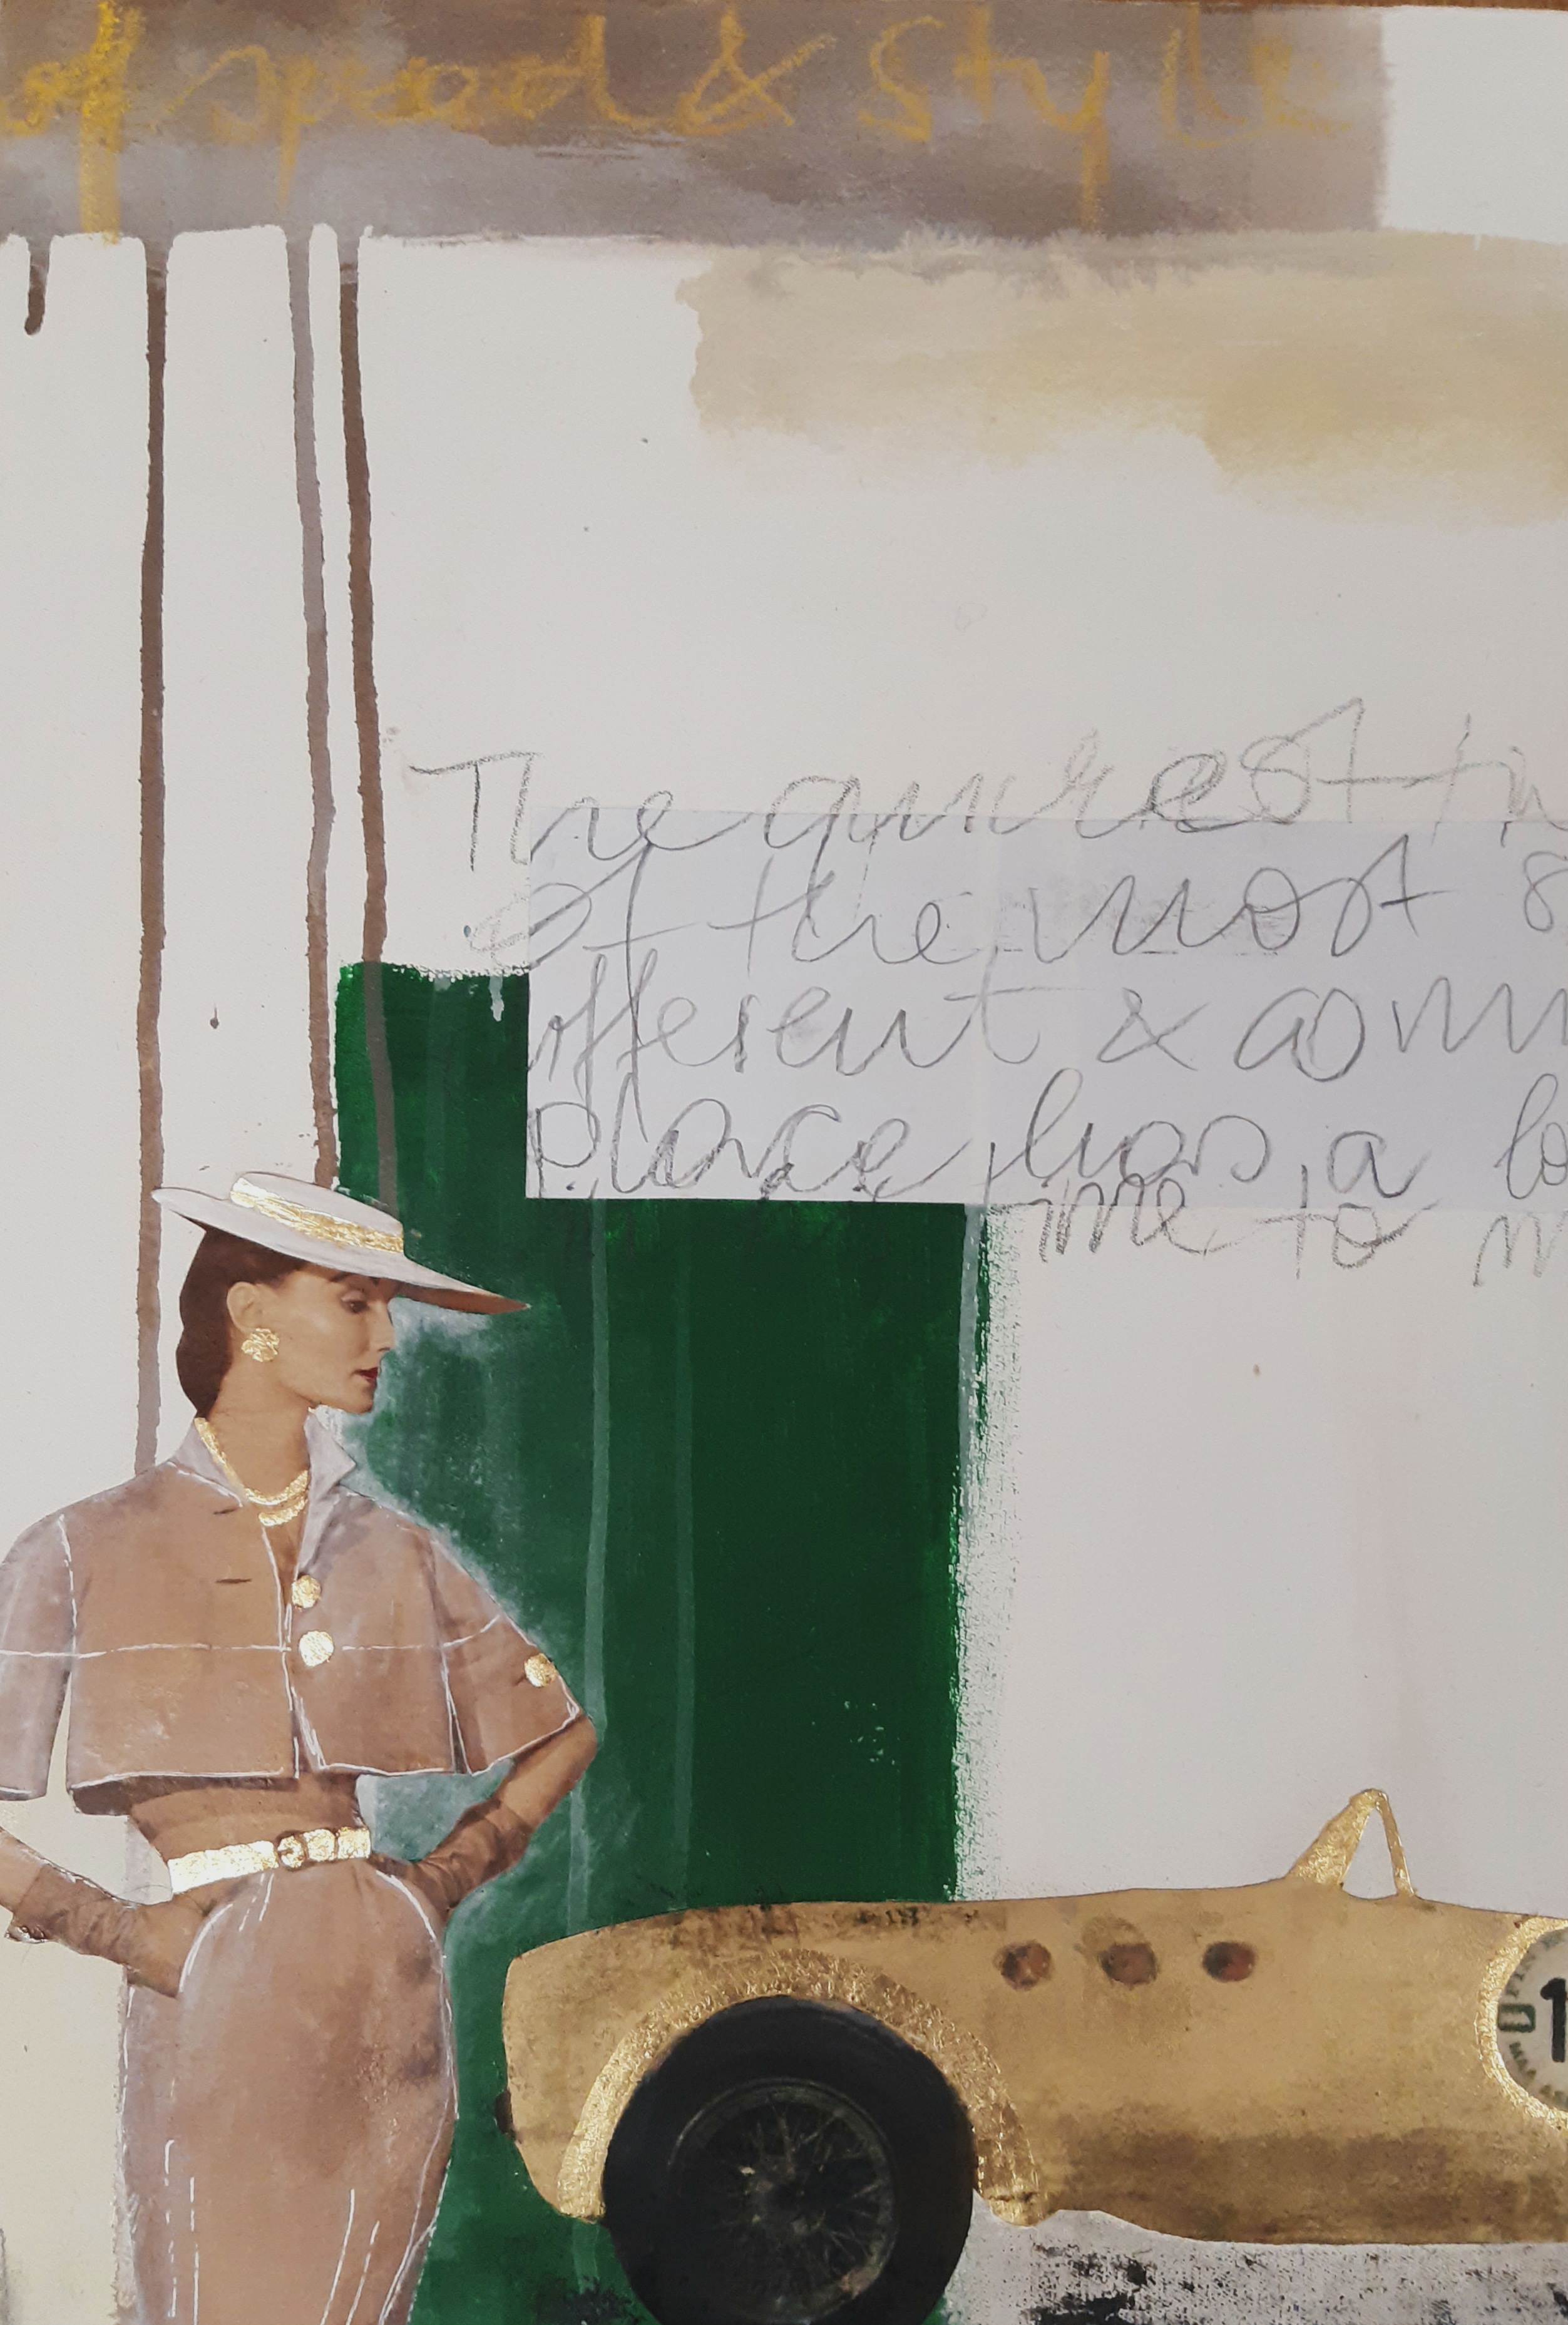 of speed & style
The quirest in
of the most s
ifferent & comm
place has a lo
me to m
1